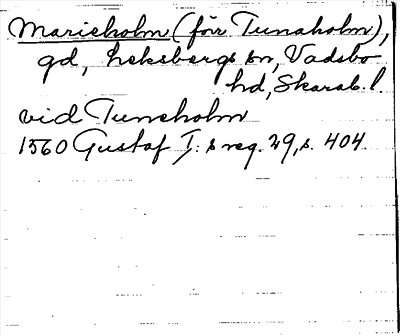 Marieholm (för Tunaholm),
gd, Leksbergs sn, Vadsbo
hd, Skarab. l.
vid Tuneholm
1560 Gustaf I:s reg. 29, s. 404.